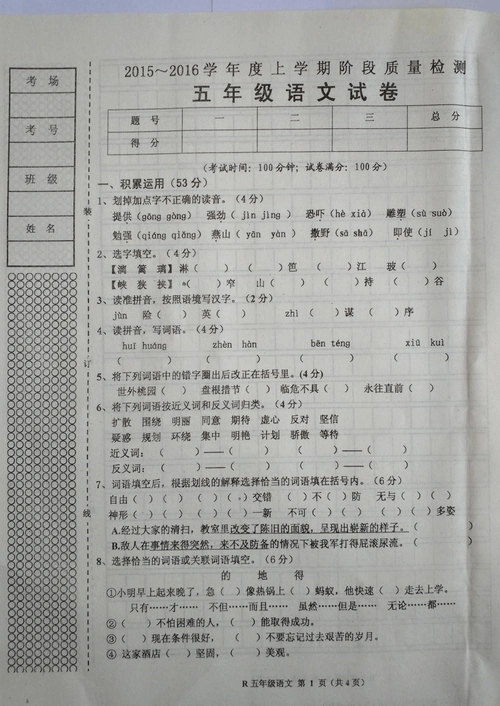 2015～2016学年度上学期阶段质量检测
五年级语文试卷
考场
考号
班级
姓名
装
订
线
题号 一 二 三 总分
得分
(考试时间：100分钟；试卷满分：100分)
一、积累运用（53分）
1、划掉加点字不正确的读音。（4分）
提供（gōng gòng） 强劲（ jìn jìng ） 恐吓（hè xià） 雕塑（sù suò）
勉强（qiáng qiǎng） 燕山（yān yàn ） 撒野（sā shā） 即使（jí jì）
2、选字填空。（4分）
【漓 篱 璃】淋（ ） （ ）笆 （ ）江 玻（ ）
【峡 狭 挟】（ ）窄 山（ ） （ ）持 （ ）谷
3、读准拼音，按照语境写汉字。（2分）
jùn 险（ ） 英（ ） zhì（ ）谋（ ）序
4、读拼音，写词语。（4分）
huī huáng zhèn hàn bēn téng xiū kuì
（ ） （ ） （ ） （ ）
5、将下列词语中的错字圈出后改正在括号里。(4分)
世外桃园（ ） 盘根措节（ ） 临危不具（ ） 永往直前（ ）
6、将下列词语按近义词和反义词归类。（4分）
扩散 围绕 明丽 同意 期待 虚心 反对 坚信
疑惑 规划 环绕 集中 明艳 计划 骄傲 等待
近义词：（ ）——（ ） （ ）——（ ）
反义词：（ ）——（ ） （ ）——（ ）
7、词语填空后，根据划线的解释选择恰当的词语填在括号内。（6分）
自由（ ）（ ） （ ）（ ）交错 （ ）不（ ）防 无与（ ）（ ）
神形（ ）（ ） （ ）（ ）一新 不可（ ）（ ） （ ）（ ）多姿
A.经过大家的清扫，教室里改变了陈旧的面貌，呈现出崭新的样子。（ ）
B.敌人在事情来得突然，来不及防备的情况下被我军打得屁滚尿流。（ ）
8、选择恰当的词语或关联词语填空。（6分）
的 地 得
①小明早上起来晚了，急（ ）像热锅上（ ）蚂蚁，他快速（ ）走去上学。
只有……才…… 不但……而且…… 虽然……但是…… 无论……都……
②（ ）不怕困难的人，（ ）能取得成功。
③（ ）现在条件很好，（ ）不要忘记过去艰苦的岁月。
④ 这家酒店（ ）坚固，（ ）美观。
R五年级语文 第 1 页（共4页）